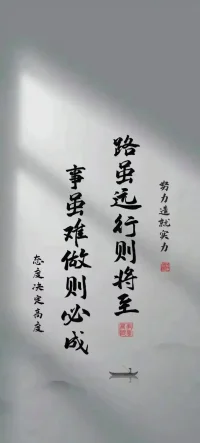 努力造就实力
路虽远行则将至
事虽难做则必成
态度决定高度